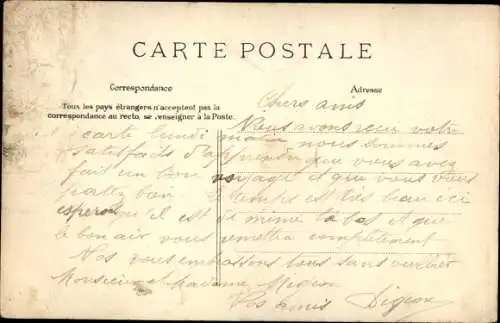 CARTE POSTALE
Correspondance
Adresse
Tous les pays étrangers n'acceptent pas la
correspondance au recto, se renseigner à la Poste.
Chers amis
Nous avons reçu votre
carte lundi matin nous sommes
satisfaits d'apprendre que vous avez
fait un bon voyage et que vous vous
portez bien le temps est très beau ici
esperons qu'il est de même là bas et que
le bon air vous remettra completement
Nos vous embrassons tous sans oublier
Monsieur et Madame
Vos amis